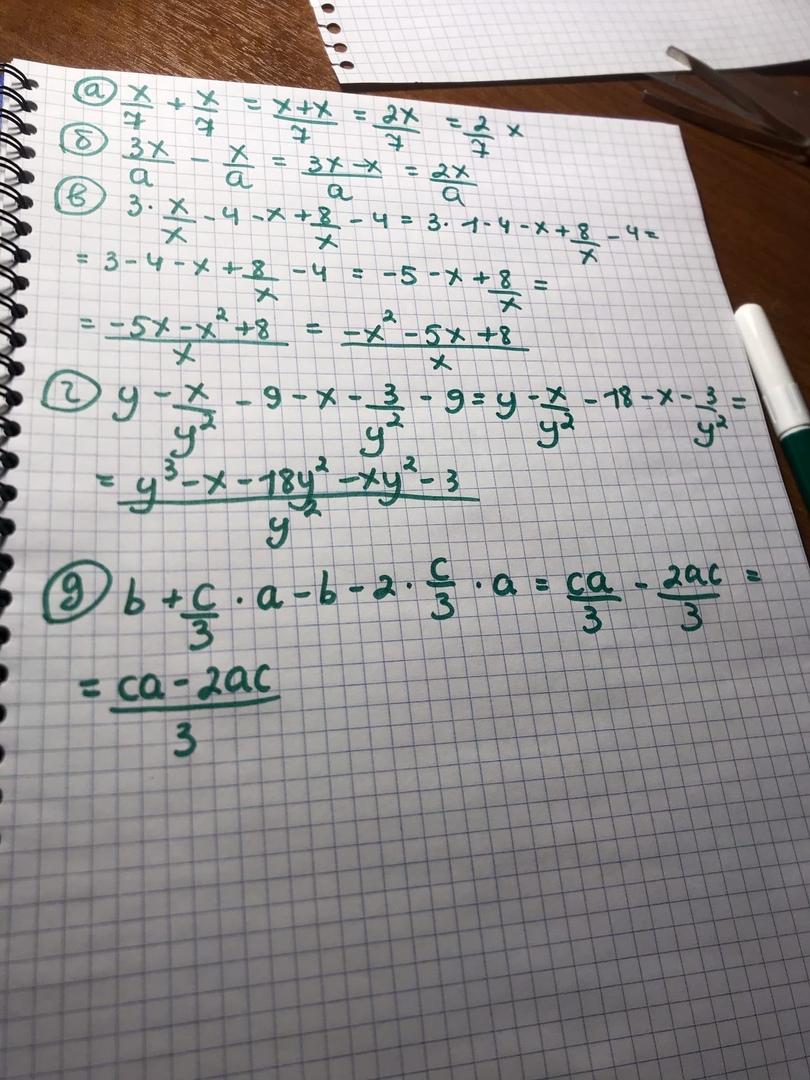 а) x/7 + x/7 = x+x/7 = 2x/7 = 2/7 x
б) 3x/a - x/a = 3x-x/a = 2x/a
в) 3 · x/x - 4 - x + 8/x - 4 = 3 · 1 - 4 - x + 8/x - 4 =
= 3 - 4 - x + 8/x - 4 = -5 - x + 8/x =
= -5x - x² + 8/x = -x² - 5x + 8/x
г) y - x/y² - 9 - x - 3/y² - 9 = y - x/y² - 18 - x - 3/y² =
= y³ - x - 18y² - xy² - 3/y²
g) b + c/3 · a - b - 2 · c/3 · a = ca/3 - 2ac/3 =
= ca - 2ac/3